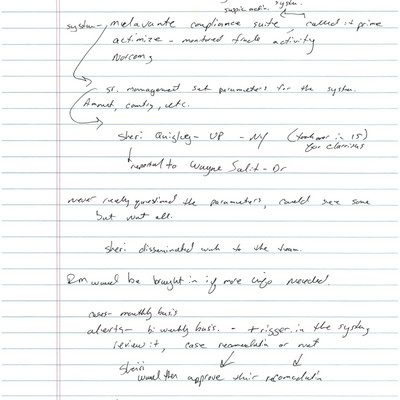 system
system - melavante compliance suite called it prime
actimize - monitored trade activity
Norcom,
sr. management set parameters for the system.
Amount, country, etc.
Sheri Quigley - VP - NY (took over in 15)
for
reported to Wayne Salit - Dr
never really questioned the parameters, could see some
but not all.
Sheri disseminated work to the team.
RM would be brought in if more info needed.
cases - monthly basis
alerts - bi weekly basis. - trigger in the system
review it, case recomendation or not
Sheiri
would then approve their recomendation